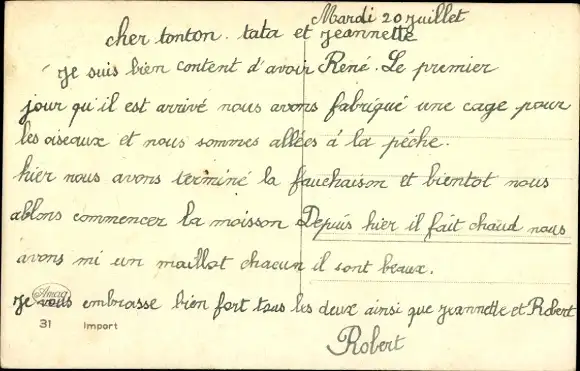 Mardi 20 juillet
cher tonton. tata et jeannette
je suis bien content d'avoir René. Le premier
jour qu'il est arrivé nous avons fabriqué une cage pour
les oiseaux et nous sommes allées á la pêche.
hier nous avons terminé la fauchaison et bientot nous
ablons commencer la moisson Depuis hier il fait chaud nous
avons mi un maillot chacun il sont beaux.
je vous embrasse bien fort tous les deux ainsi que jeannette et Robert
Robert
Amag
31 Import